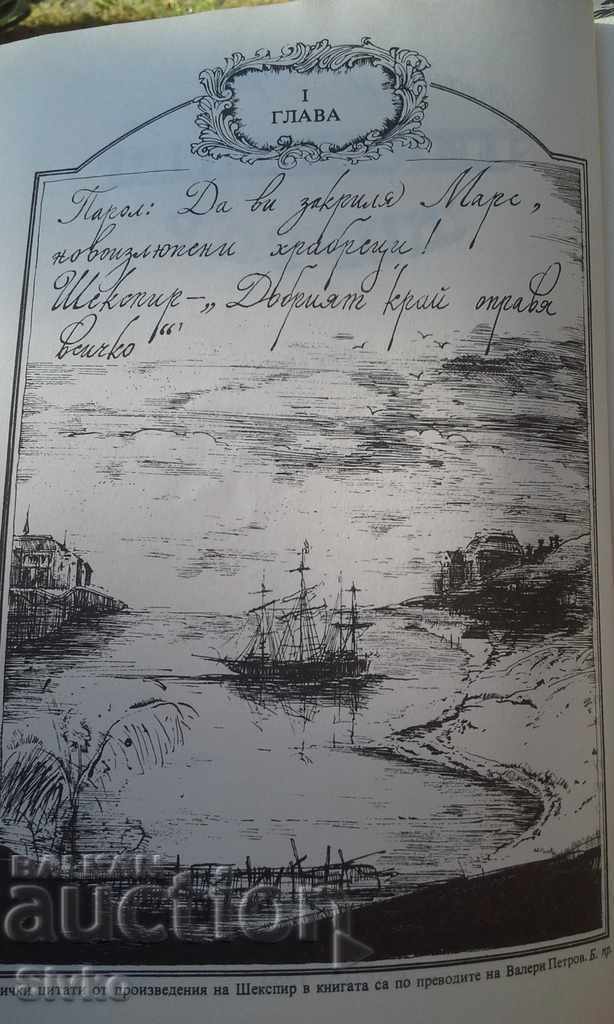 I
ГЛАВА
Парол: Да ви закриля Марс,
новоизлюпени храбреци!
Шекспир – „Добрият край оправя
всичко“¹
BALKAN
auction
Slvko
цитати от произведения на Шекспир в книгата са по преводите на Валери Петров. Б. пр.